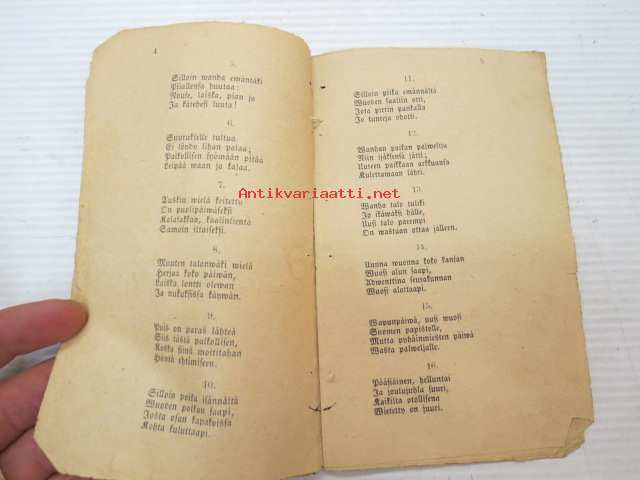 4
5.
Silloin wanha emäntäki
Piiallensa huutaa:
Nouse, laiska, pian jo
Ja kätehesi luuta!
6.
Suurukselle tultua
Ei löydy lihan palaa;
Palkollisen syömään pitää
Leipää waan ja kalaa.
7.
Tuskin wielä keitetty
On puolipäiwäseksi
Kalalakkaa, kaalinlientä
Samoin iltaiseksi.
8.
Muuten talonwäki wielä
Herjaa koko päiwän,
Laiska lentti olewan
Ja nukuksissa käywän.
9.
Pois on paras lähteä
Siis tästä palkollisen,
Koska siinä moititahan
Häntä ehtimiseen.
10.
Silloin poika isännältä
Wuoden poikau saapi,
Josta osan kapakoissa
Kohta kuluttaapi.
5
11.
Silloin piika emännältä
Wuoden saaliin otti,
Jota pirtin pankalla
Jo tunteja odotti.
12.
Wanhan paikan palwelija
Niin ijäksensä jätti;
Uuteen paikkaan arkkuansa
Kulettamaan lähti.
13.
Wanha talo tuliki
Jo ikäwäksi hälle,
Uusi talo parempi
On wastaan ottaa jälleen.
14.
Uunna wuonna koko kansan
Wuosi alun saapi,
Adwenttina seurakunnan
Wuosi alottaapi.
15.
Wapunpäiwä, uusi wuosi
Suomen papistolle,
Mutta pyhäinmiesten päiwä
Wasta palweljalle.
16.
Pääsiäinen, helluntai
Ja joulujuhla suuri,
Kaikilta otollisena
Wietetty on juuri.
Antikvariaatti.net